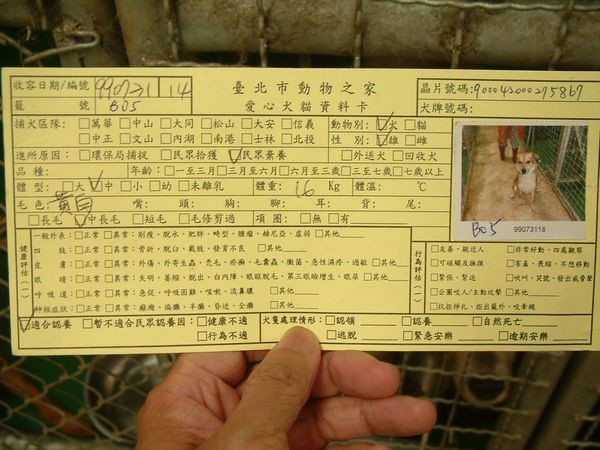 收容日期/編號 990731 14 臺北市動物之家 晶片號碼:900043000275867
籠號 B05 愛心犬貓資料卡 犬牌號碼:
捕犬區隊: □萬華□中山□大同□松山□大安□信義 動物別: ☑犬 □貓
□中正□文山□內湖□南港□士林□北投 性別: ☑雄 □雌
進所原因: □環保局捕捉 □民眾拾獲 ☑民眾棄養 □外送犬 □回收犬
品種: 年齡: □一至三月□三月至六月□六月至一歲□一至三歲□三至七歲□七歲以上
體型: □大☑中 □小 □幼 □未離乳 體重: 16 Kg 體溫: ℃
毛色: 黃白 嘴: 頭: 胸: 腳: 耳: 背: 尾:
□長毛 ☑中長毛 □短毛 □毛修剪過 項圈: □無 □有
B05 99073118
健康評估(一)
一般外表: □正常 □異常: 削瘦、脫水、肥胖、畸型、腫瘤、赫尼亞、虛弱 □其他
四肢: □正常 □異常: 骨折、脫臼、截肢、發育不良 □其他
皮膚: □正常 □異常: 外傷、外寄生蟲、禿毛、疥癬、毛囊蟲、黴菌、急性濕疹、過敏 □其他
眼睛: □正常 □異常: 失明、萎縮、脫出、白內障、眼瞼脫毛、第三眼瞼增生、眼屎 □其他
呼吸道: □正常 □異常: 急促、呼吸困難、咳嗽、流鼻膿 □其他
神經症狀: □正常 □異常: 癲癇、偏癱、半癱、昏迷、全癱 □其他
行為評估(一)
□友善、親近人 □非常好動、四處觀察
□可碰觸及撫摸 □害羞、長縮、不想移動
□緊張、緊迫 □吠叫、哭號、發出威脅聲
□企圖咬人/主動攻擊 □其他
□抗拒掙扎、拒出籠外、咬牽繩
☑適合認養 □暫不適合民眾認養因: □健康不適 犬隻處理情形: □認領 □認養 □自然死亡
□行為不適 □逃脫 □緊急安樂 □逾期安樂